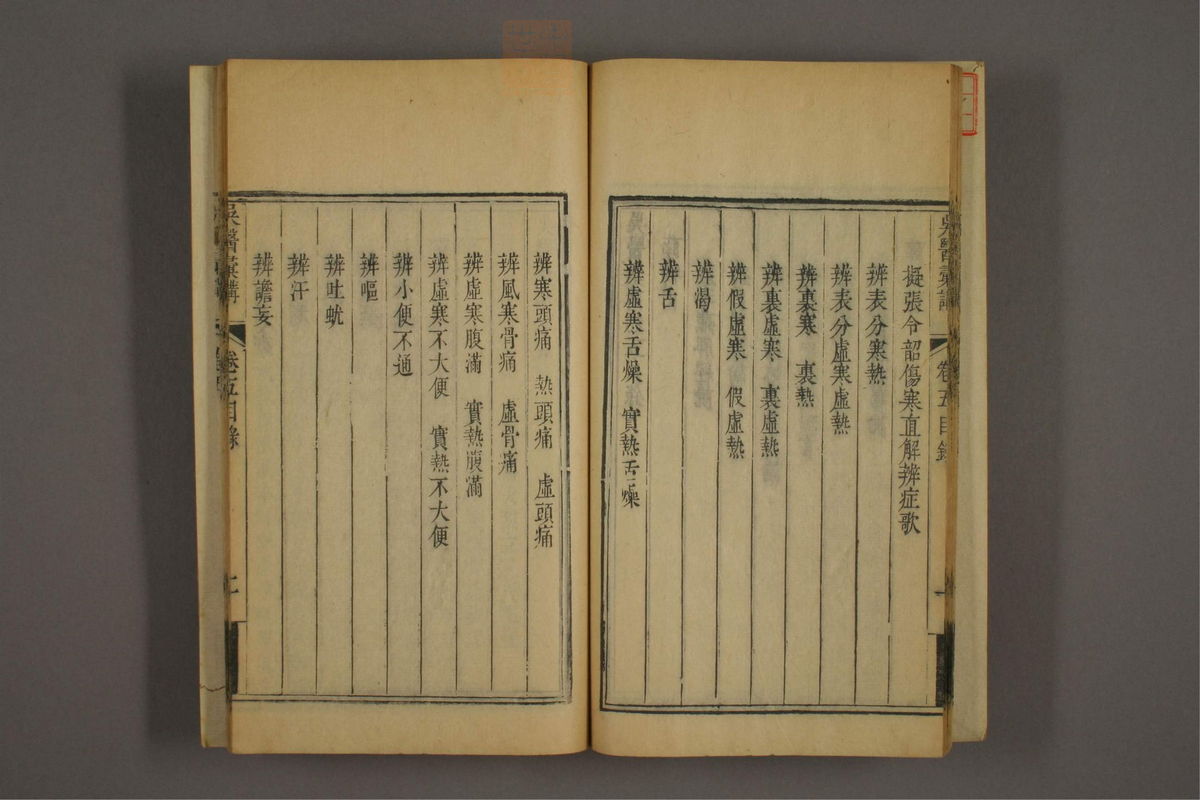 擬張令韶傷寒直解辨症歌
辨表分寒熱
辨表分虛寒虛熱
辨裏寒 裏熱
辨裏虛寒 裏虛熱
辨假虛寒 假虛熱
辨渴
辨舌
辨虛寒舌燥 實熱舌燥
辨寒頭痛 熱頭痛 虛頭痛
辨風寒骨痛 虛骨痛
辨虛寒腹滿 實熱腹滿
辨虛寒不大便 實熱不大便
辨小便不通
辨嘔
辨吐蚘
辨汗
辨譫妄
吳醫彙講
卷五目錄